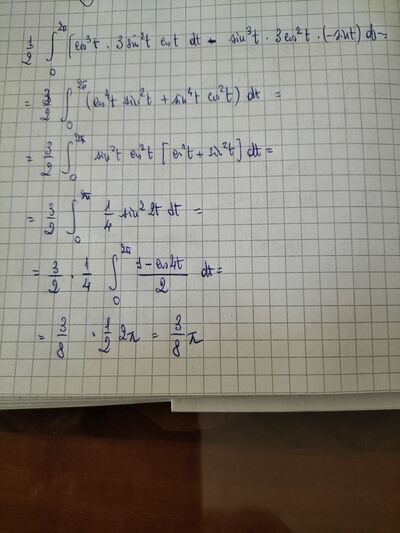 1/2 ∫₀^{2π} [cos³t · 3 sin²t cost dt - sin³t · 3cos²t · (-sint) dt =
= 3/2 ∫₀^{2π} (cos⁴t sin²t + sin⁴t cos²t) dt =
= 3/2 ∫₀^{2π} sin²t cos²t [cos²t + sin²t] dt =
= 3/2 ∫₀^{2π} 1/4 sin² 2t dt =
= 3/2 · 1/4 ∫₀^{2π} (1 - cos4t)/2 dt =
= 3/8 · 1/2 2π = 3/8 π